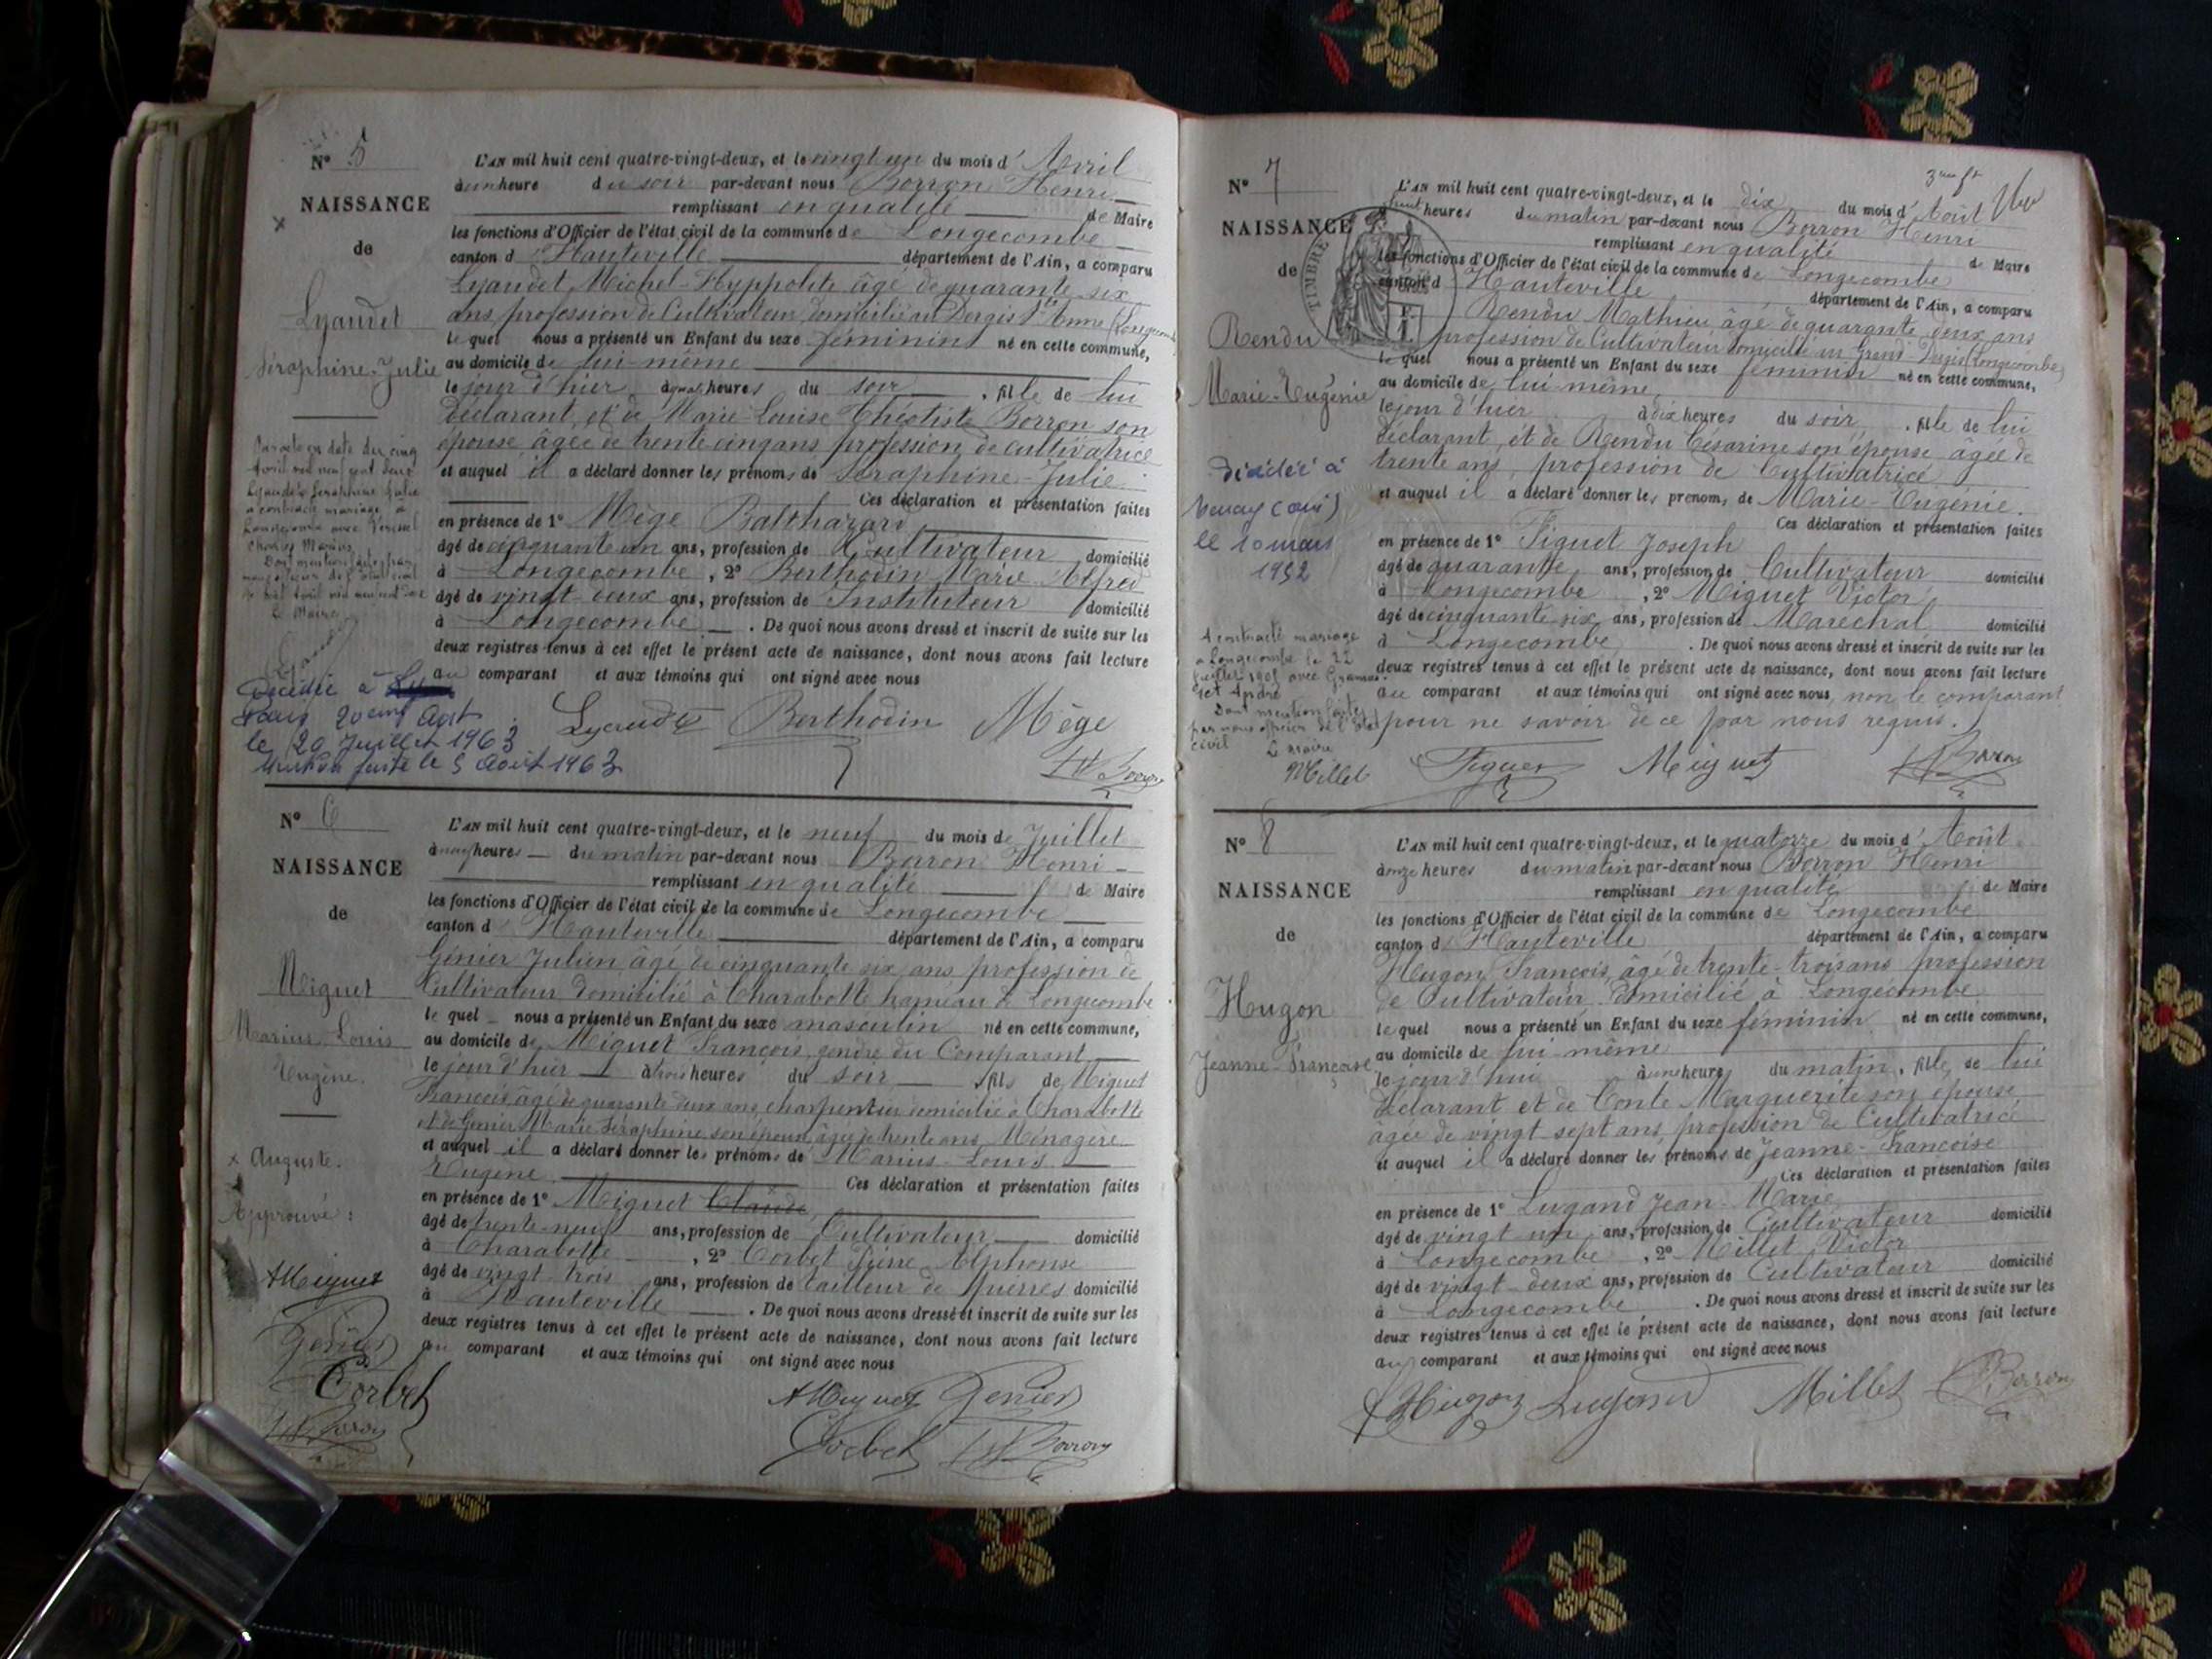 N° 5
NAISSANCE
de
Lyaudet
Séraphine-Julie
L'AN mil huit cent quatre-vingt-deux, et le vingt un du mois d'Avril
à un heure du soir par-devant nous Borron Henri
remplissant en qualité de Maire
les fonctions d'Officier de l'état civil de la commune de Longecombe
canton d'Hauteville département de l'Ain, a comparu
Lyaudet Michel-Hyppolite âgé de quarante six
ans, profession de Cultivateur, domicilié au Dergis Ste Anne (Longecombe)
le quel nous a présenté un Enfant du sexe féminin né en cette commune,
au domicile de lui-même
le jour d'hier à heures du soir, fille de lui
déclarant, et de Marie-Louise Théotiste Borron son
épouse âgée de trente cinq ans, profession de cultivatrice
et auquel il a déclaré donner les prénoms de Séraphine-Julie
Ces déclaration et présentation faites
en présence de 1° Mège Balthazard
âgé de cinquante un ans, profession de Cultivateur domicilié
à Longecombe, 2° Berthodin Marie Alfred
âgé de vingt-deux ans, profession de Instituteur domicilié
à Longecombe. De quoi nous avons dressé et inscrit de suite sur les
deux registres tenus à cet effet le présent acte de naissance, dont nous avons fait lecture
au comparant et aux témoins qui ont signé avec nous
Lyaudet Berthodin Mège
H Borron
Par acte en date du cinq
Avril mil neuf cent deux
Lyaudet Séraphine Julie
a contracté mariage à
Longecombe avec
Charles Marius
Dont mention faite par
nous officier de l'état civil
le Avril mil neuf cent deux
Le Maire
Décédée à
Paris 20eme Arrt
le 20 Juillet 1963
Mention faite le 5 Août 1963
N° 6
NAISSANCE
de
Miguet
Marius Louis
Eugène.
x Auguste.
Approuvé :
AMiguet
Genier
Corbet
H Borron
L'AN mil huit cent quatre-vingt-deux, et le neuf du mois de Juillet
à heures du matin par-devant nous Borron Henri
remplissant en qualité de Maire
les fonctions d'Officier de l'état civil de la commune de Longecombe
canton d'Hauteville département de l'Ain, a comparu
Génier Julien âgé de cinquante six ans profession de
Cultivateur domicilié à Charabotte hameau de Longecombe
le quel nous a présenté un Enfant du sexe masculin né en cette commune,
au domicile de Miguet François, gendre du Comparant
le jour d'hier à trois heures du soir, fils de Miguet
François âgé de quarante deux ans, charpentier domicilié à Charabotte
et de Genier Marie Séraphine son épouse âgée de trente ans, Ménagère
et auquel il a déclaré donner les prénoms de Marius-Louis
Eugène. Ces déclaration et présentation faites
en présence de 1° Miguet Claude
âgé de trente-neuf ans, profession de Cultivateur domicilié
à Charabotte, 2° Corbet Pierre Alphonse
âgé de vingt trois ans, profession de tailleur de pierres domicilié
à Hauteville. De quoi nous avons dressé et inscrit de suite sur les
deux registres tenus à cet effet le présent acte de naissance, dont nous avons fait lecture
au comparant et aux témoins qui ont signé avec nous
AMiguet Genier
Corbet H Borron
N° 7
NAISSANCE
de
TIMBRE
Rendu
Marie-Eugénie
L'AN mil huit cent quatre-vingt-deux, et le dix du mois d'Août
à huit heures du matin par-devant nous Borron Henri
remplissant en qualité de Maire
les fonctions d'Officier de l'état civil de la commune de Longecombe
canton d'Hauteville département de l'Ain, a comparu
Rendu Mathieu âgé de quarante deux ans
profession de Cultivateur domicilié au Grand Dergis (Longecombe)
le quel nous a présenté un Enfant du sexe féminin né en cette commune,
au domicile de lui-même
le jour d'hier à dix heures du soir, fille de lui
déclarant, et de Rendu Césarine son épouse âgée de
trente ans, profession de Cultivatrice
et auquel il a déclaré donner les prénoms de Marie-Eugénie.
Ces déclaration et présentation faites
en présence de 1° Figuet Joseph
âgé de quarante ans, profession de Cultivateur domicilié
à Longecombe, 2° Miguet Victor
âgé de cinquante six ans, profession de Maréchal domicilié
à Longecombe. De quoi nous avons dressé et inscrit de suite sur les
deux registres tenus à cet effet le présent acte de naissance, dont nous avons fait lecture
au comparant et aux témoins qui ont signé avec nous, non le comparant
pour ne savoir de ce par nous requis.
Figuet Miguet H Borron
Décédée à
Tenay (Ain)
le 10 mars
1952
A contracté mariage
à Longecombe le 22
Juillet 1905 avec
André
Dont mention faite
par nous officier de l'état
civil
Le maire
Millet
N° 8
NAISSANCE
de
Hugon
Jeanne-Françoise
L'AN mil huit cent quatre-vingt-deux, et le quatorze du mois d'Août
à onze heures du matin par-devant nous Borron Henri
remplissant en qualité de Maire
les fonctions d'Officier de l'état civil de la commune de Longecombe
canton d'Hauteville département de l'Ain, a comparu
Hugon François, âgé de trente-trois ans profession
de Cultivateur domicilié à Longecombe
le quel nous a présenté un Enfant du sexe féminin né en cette commune,
au domicile de lui même
le jour d'hui à une heure du matin, fille de lui
déclarant et de Conte Marguerite son épouse
âgée de vingt sept ans, profession de Cultivatrice
et auquel il a déclaré donner les prénoms de Jeanne-Françoise
Ces déclaration et présentation faites
en présence de 1° Lugand Jean-Marie
âgé de vingt un ans, profession de Cultivateur domicilié
à Longecombe, 2° Millet Victor
âgé de vingt-deux ans, profession de Cultivateur domicilié
à Longecombe. De quoi nous avons dressé et inscrit de suite sur les
deux registres tenus à cet effet le présent acte de naissance, dont nous avons fait lecture
au comparant et aux témoins qui ont signé avec nous
Hugon Lugand Millet H Borron